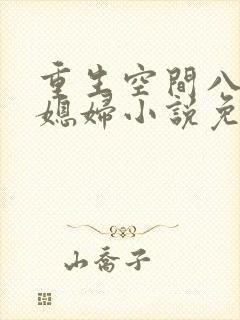 重生空間八
媳婦小說免
山喬子